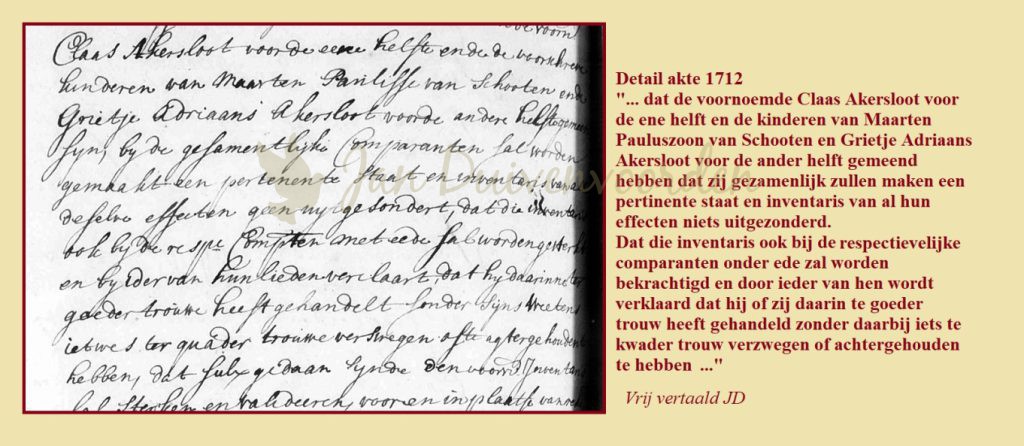 de voorn
Claas Akersloot voor de eene helfte ende de voorschreve
kinderen van Maarten Paulisse van Schooten ende
Grietje Adriaans Akersloot voor de andere helfte gemeen
syn, by de gesamentlijke Comparanten sal worden
gemaakt een pertenente Staat en inventaris van a
deselve effecten geen uytgesondert, dat die inventaris
ook by de respe. Compten met eede sal worden gesterkt
en by ider van hun lieden verclaart, dat hy daarinne ter
goeder trouwe heeft gehandelt sonder syns weetens
ietwes ter quader trouwe versweegen ofte agtergehouden
hebben, dat sulx gedaan synde den voorn. Inventaris
sal Sterken en valideeren, voor en in plaatse van
Jan Duivenvoorden
Detail akte 1712
"... dat de voornoemde Claas Akersloot voor
de ene helft en de kinderen van Maarten
Pauluszoon van Schooten en Grietje Adriaans
Akersloot voor de ander helft gemeend
hebben dat zij gezamenlijk zullen maken een
pertinente staat en inventaris van al hun
effecten niets uitgezonderd.
Dat die inventaris ook bij de respectievelijke
comparanten onder ede zal worden
bekrachtigd en door ieder van hen wordt
verklaard dat hij of zij daarin te goeder
trouw heeft gehandeld zonder daarbij iets te
kwader trouw verzwegen of achtergehouden
te hebben ..."
Vrij vertaald JD